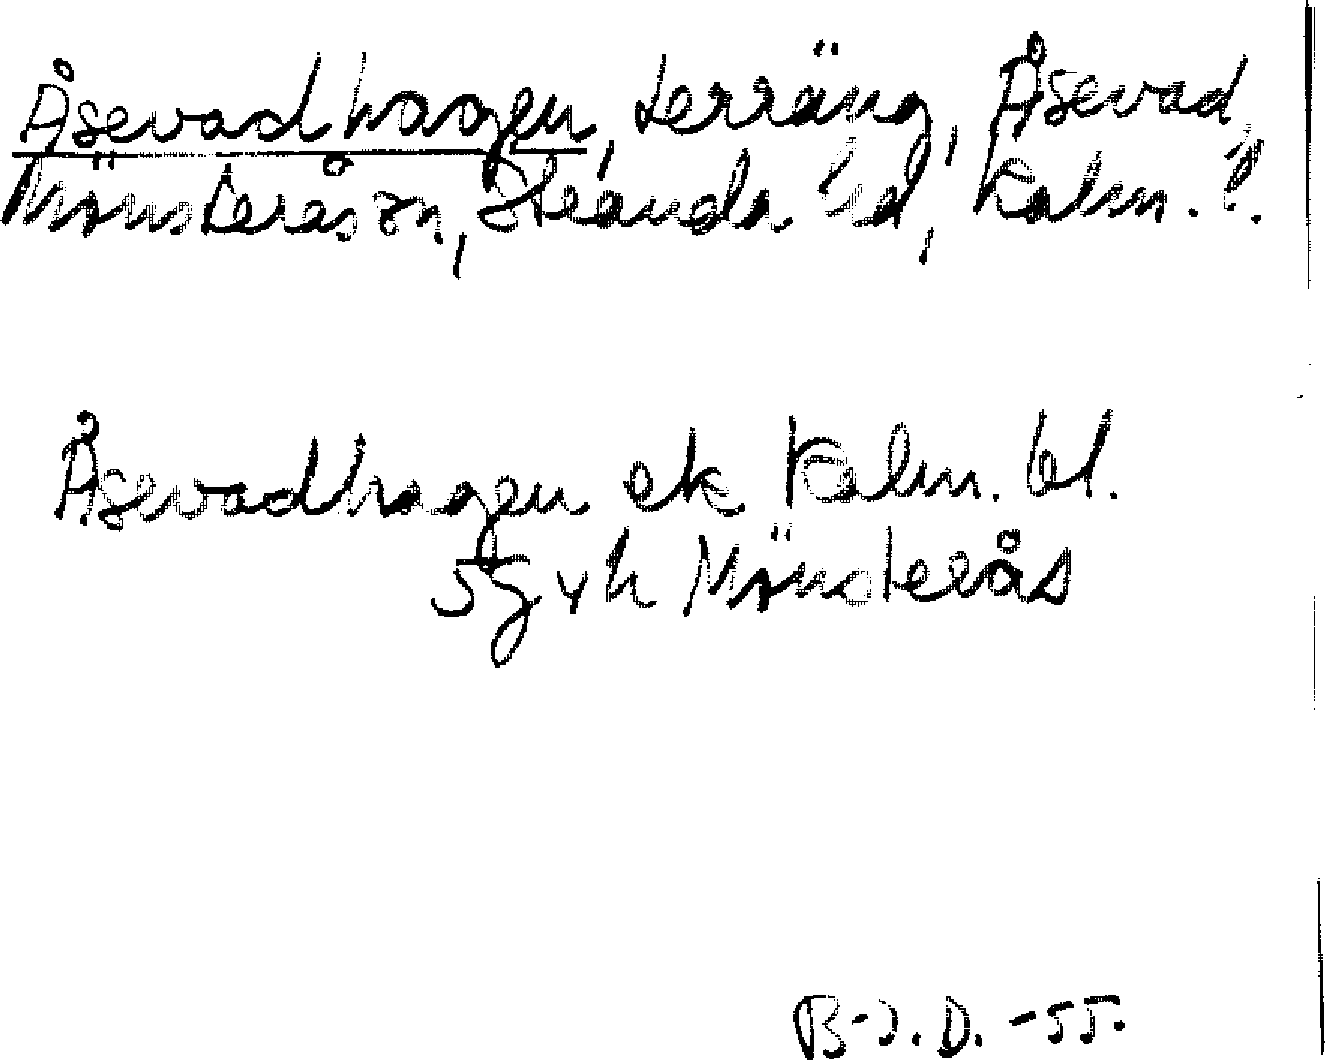 Åsevadhagen, terräng, Åsevad,
Mönsterås sn, Stranda hd, Kalm. l.
Åsevadhagen ek Kalm. bl.
5g vh Mönsterås
B-J. D. -55.